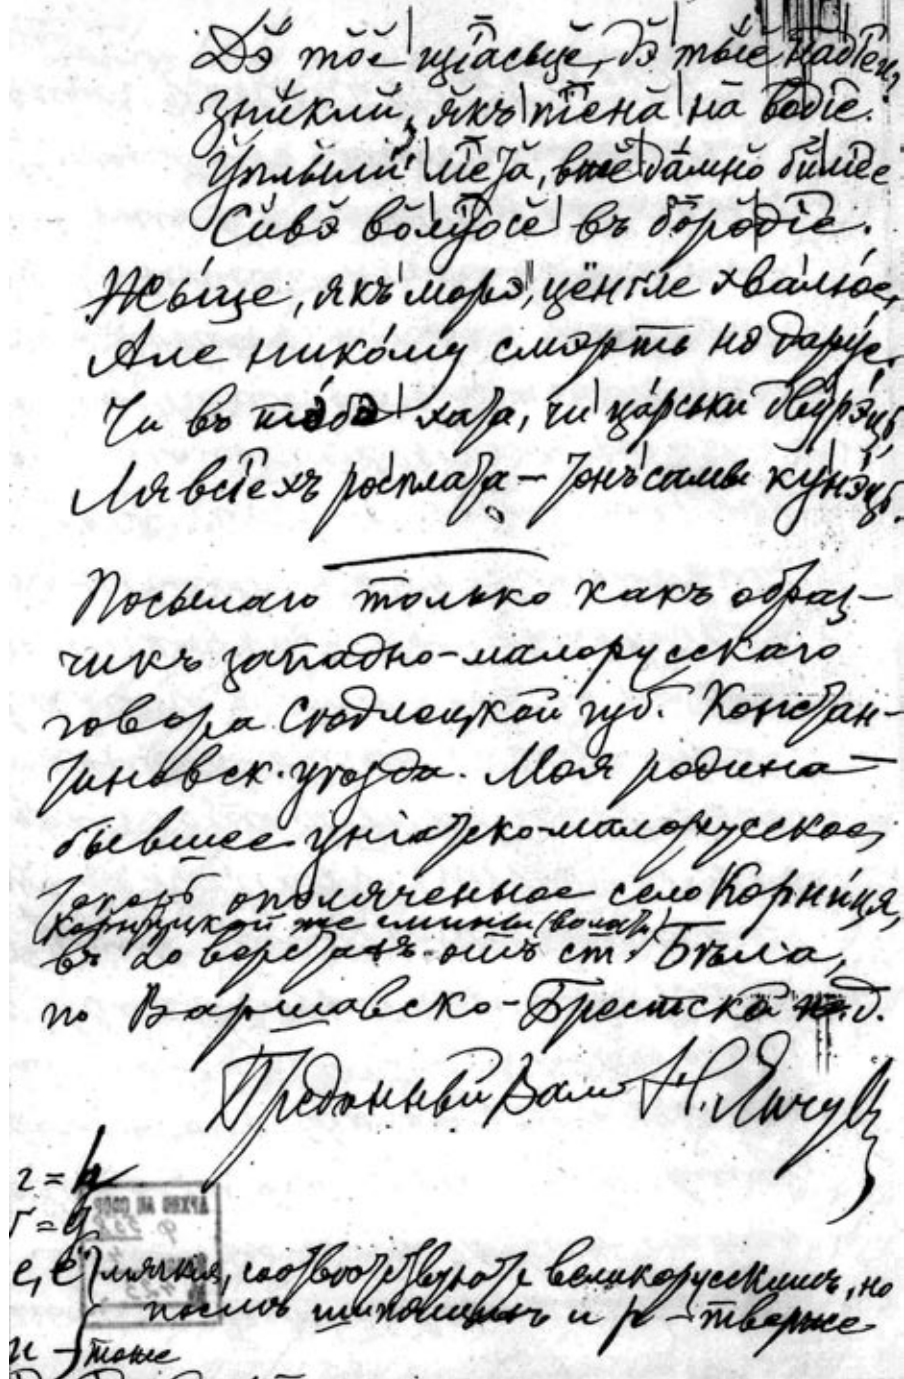 Дэ тое щiасьце, дэ тые надiеи,
Зникли, якъ пiена на водiе.
Уплыли лiета, вже давно билiее
Сивэ волосе въ бородiе.
Жыце, якъ морэ, цёнгле хвалюе,
Але никому смэрть не даруе.
Чи въ тебе хата, чи царськи двурэць,
Ля всiехъ росплата – тонъ самы кунэць.
Посылаю только какъ образ-
чикъ западно-малорусскаго
говора Сѣдлецкой губ. Констан-
тиновск. уѣзда. Моя родина –
бывшее унiатско-малорусское,
теперь ополяченное село Корница,
Корницкой же гмины (волости)
въ 20 верстахъ отъ ст. Бѣла,
по Варшавско-Брестской ж.д.
Преданный Вамъ Н. Янчукъ
г = h
ґ = g
е, ё мягкiя, соотвѣтствуютъ великорусскимъ, но
послѣ шипящихъ и р – тверже
и – тоже